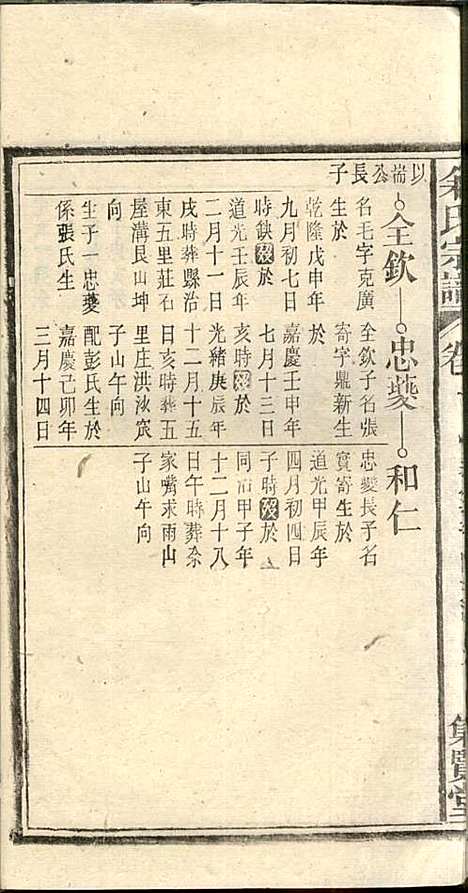 氏宗譜
卷
集賢堂
以耑公長子
全欽
忠夔
和仁
名毛字克廣
生於
乾隆戊申年
九月初七日
時缺歿於
道光壬辰年
二月十一日
戌時葬縣治
東五里莊石
屋溝艮山坤
向
生子一忠夔
係張氏生
全欽子名張
寄字鼎新生
於
嘉慶壬申年
七月十三日
亥時歿於
光緒庚辰年
十二月十五
日亥時葬五
里庄洪
子山午向
配彭氏生於
嘉慶己卯年
三月十四日
忠夔長子名
寶寄生於
道光甲辰年
四月初四日
子時歿於
同治甲子年
十二月十八
日午時葬余
家嘴求雨山
子山午向